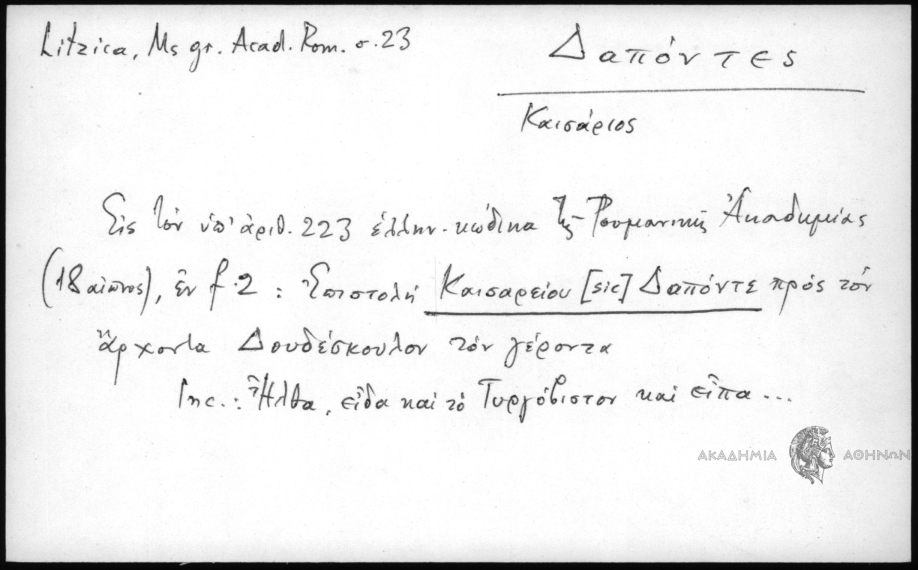 Litzica, Ms gr. Acad. Rom. σ. 23
Δαπόντες
Καισάριος
Εἰς τὸν ὑπ' ἀριθ. 223 ἑλλην. κώδικα τῆς Ρουμανικῆς Ἀκαδημίας
(18 αἰῶνος), ἐν f. 2 : Ἐπιστολὴ Καισαρείου [sic] Δαπόντε πρὸς τὸν
ἄρχοντα Δουδέσκουλον τὸν γέροντα
Inc. : Ἦλθα, εἶδα καὶ τὸ Τυργόβιστον καὶ εἶπα ...
ΑΚΑΔΗΜΙΑ ΑΘΗΝΩΝ